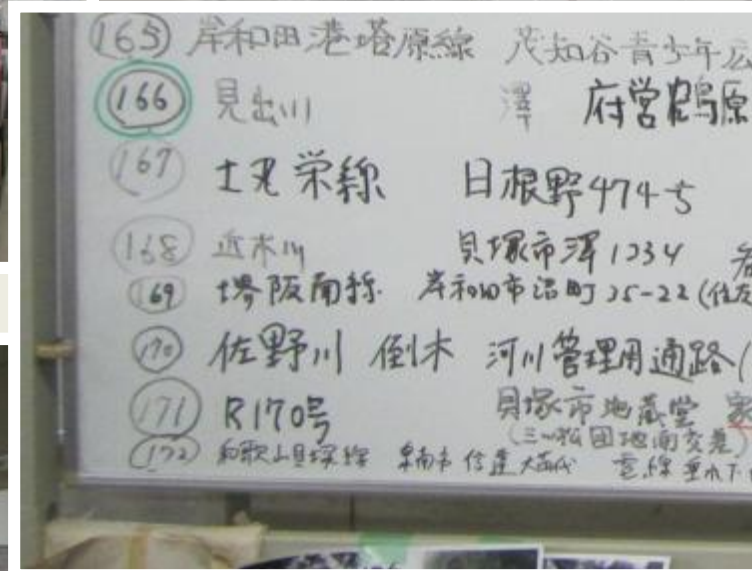 165 岸和田港塔原線 茂知谷青少年
166 見出川 澤 府営鶴原
167 土丸栄線 日根野474-5
168 近木川 貝塚市澤1234
169 堺阪南線 岸和田市沼町25-22(
170 佐野川 倒木 河川管理用通路(
171 R170号 貝塚市地蔵堂
(三ツ松団地南交差)
172 和歌山貝塚線 泉南市信達大苗代 電線垂れ下